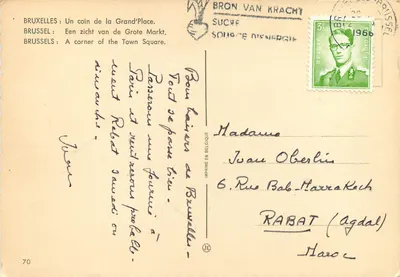 BRUXELLES : Un coin de la Grand'Place.
BRUSSEL : Een zicht van de Grote Markt.
BRUSSELS : A corner of the Town Square.
BRON VAN KRACHT
SUCRE
SOURCE D'ENERGIE
1966
Bons baisers de Bruxelles -
Tout se passe bien.
Passerons une journée à
Paris et rentrerons probable-
ment Rabat samedi ou
dimanche -
Ivan
Madame
Ivan Oberlin
6. Rue Bab-Marrakech
RABAT (Agdal)
Maroc
70